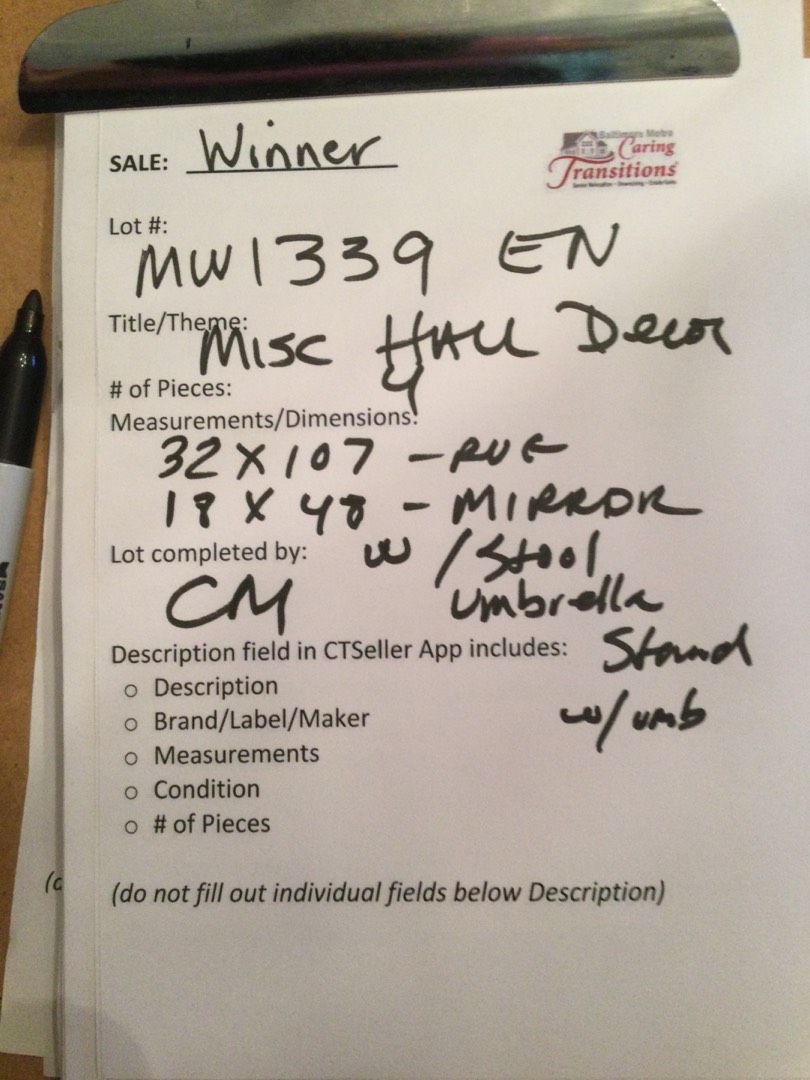 SALE: Winner
Baltimore Metro
Caring
Transitions
Lot #:
MW1339 EN
Title/Theme:
Misc HALL Decor
# of Pieces: 4
Measurements/Dimensions:
32 X 107 - RUG
18 X 48 - MIRROR
Lot completed by: w/Stool
CM Umbrella
Description field in CTSeller App includes: Stand
o Description
o Brand/Label/Maker w/umb
o Measurements
o Condition
o # of Pieces
(do not fill out individual fields below Description)